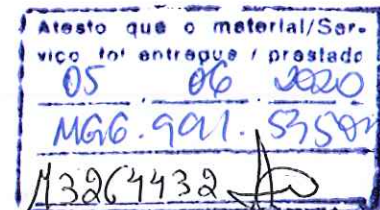 Atesto que o material/Ser-
viço foi entregue / prestado
05 06 2020
13264432